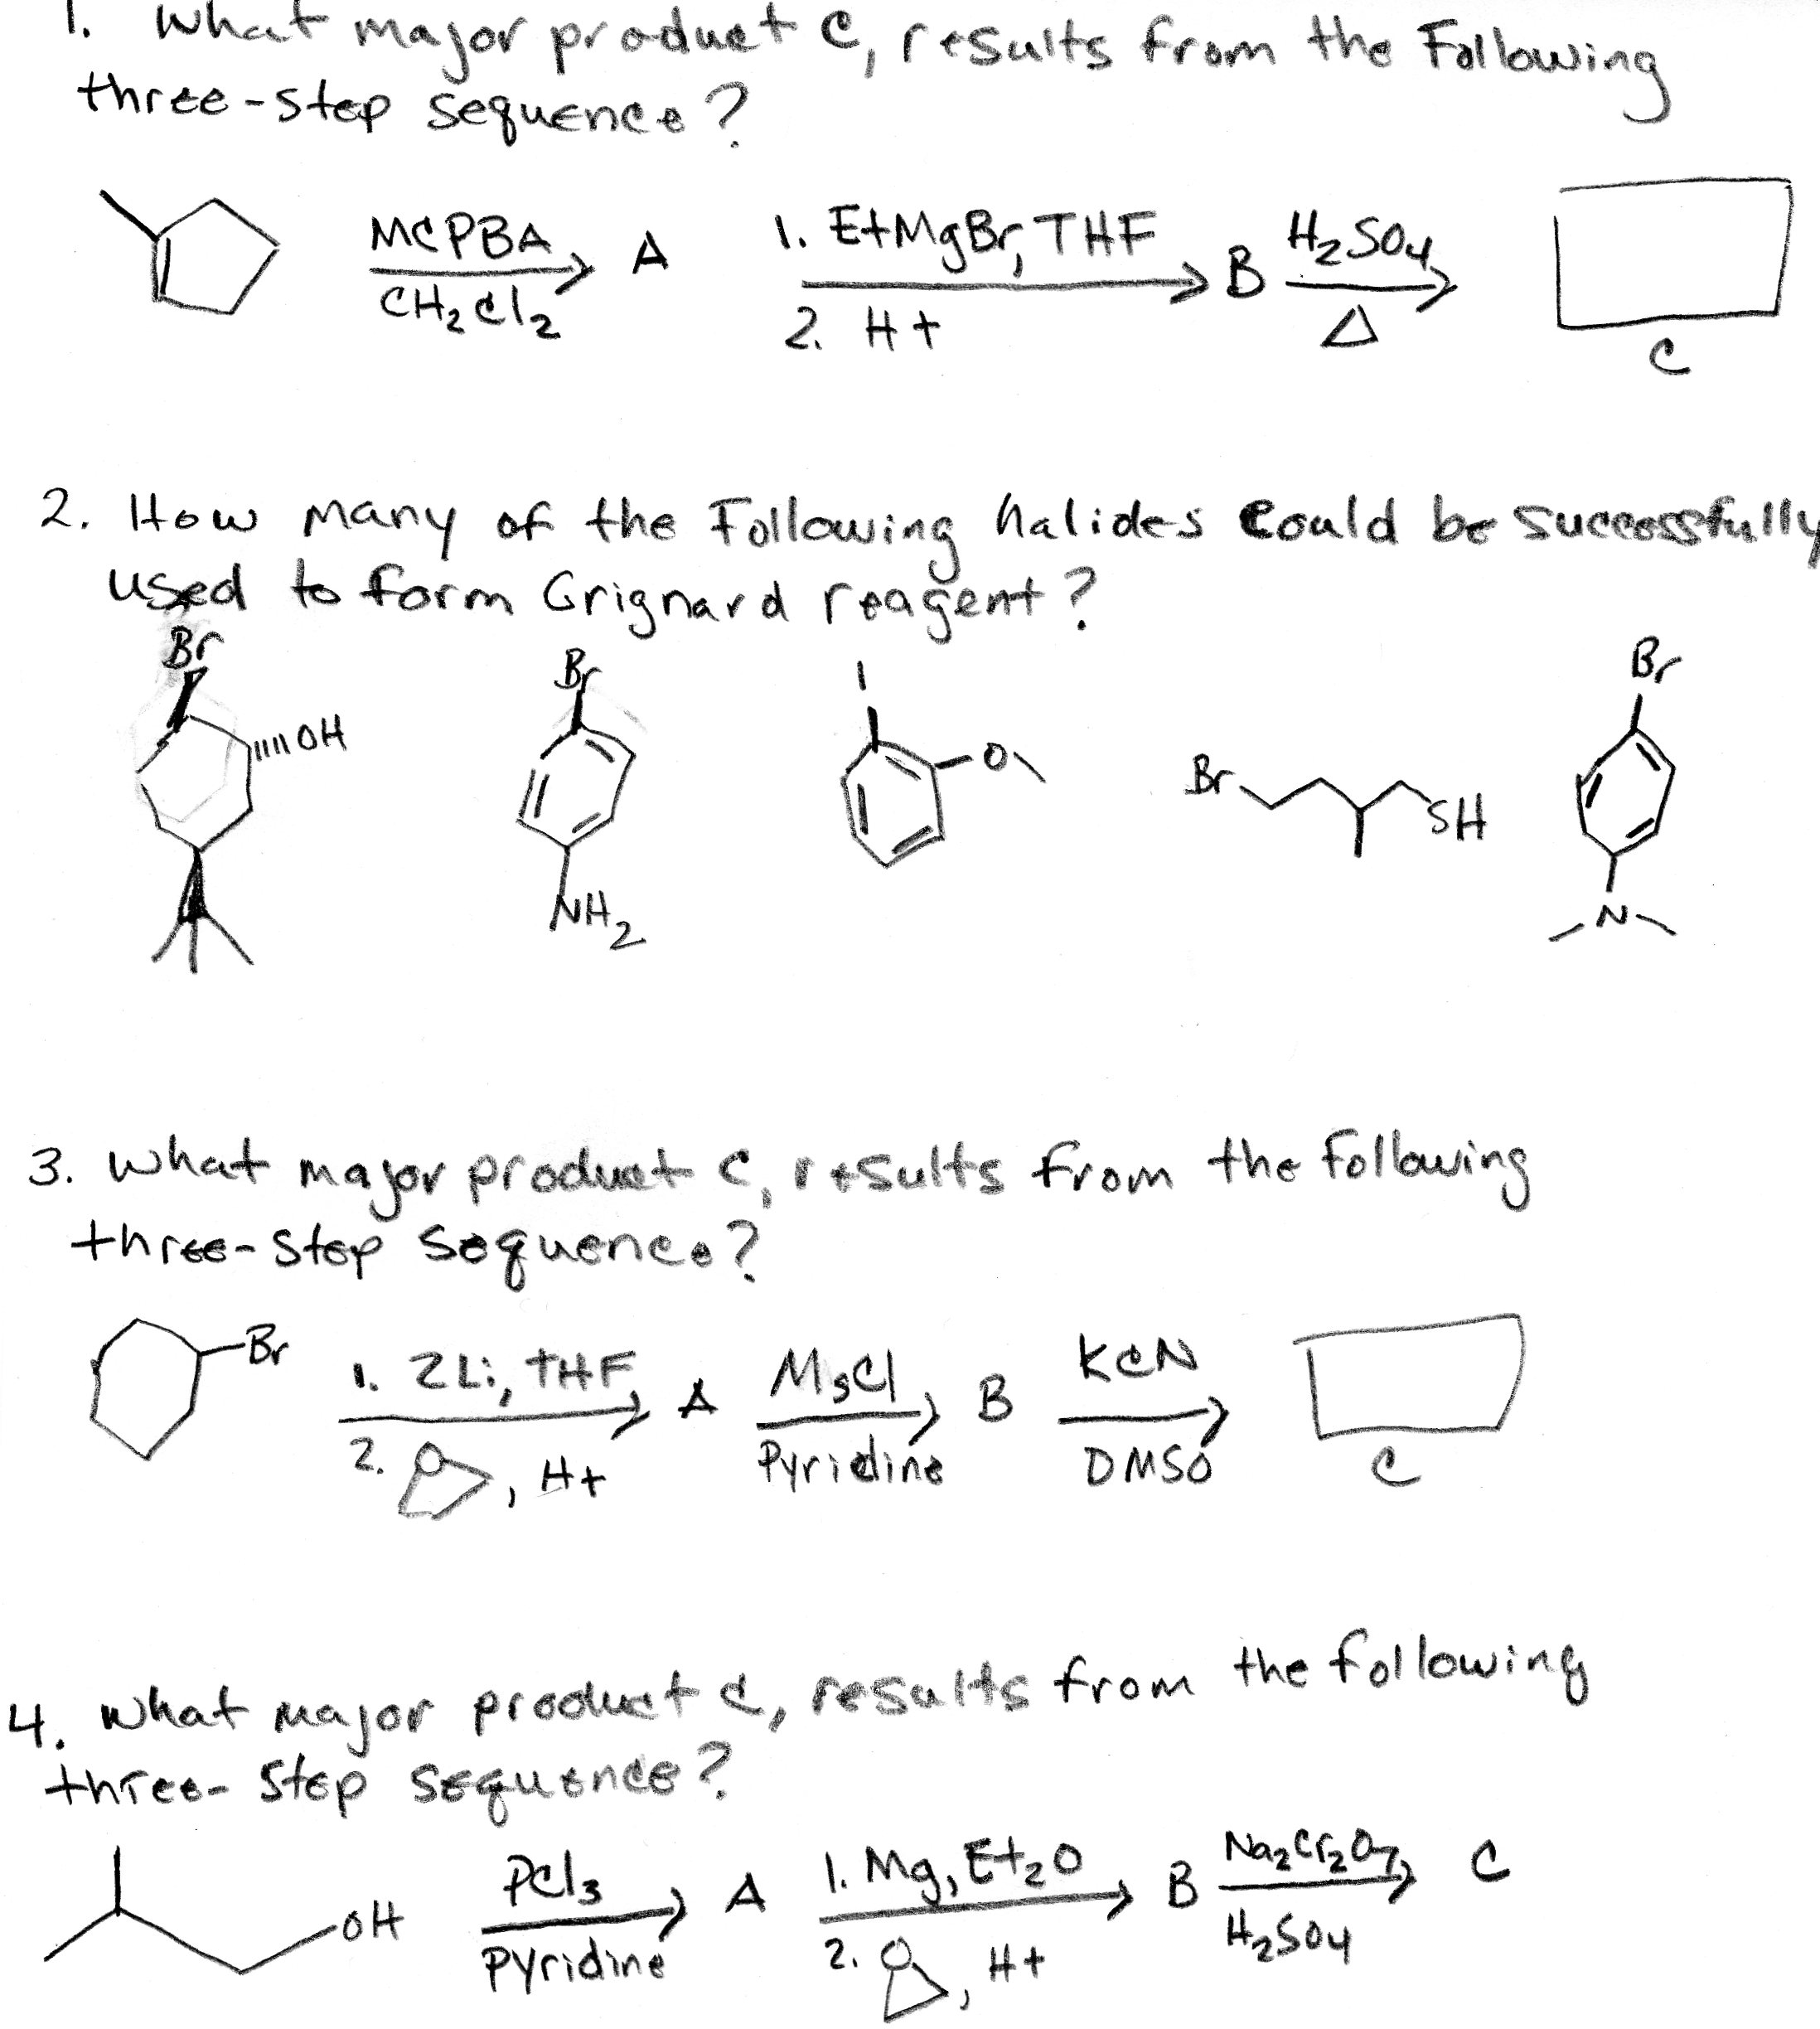 1. What major product C, results from the Following
three-step sequence?
MCPBA
CH2Cl2
A
1. EtMgBr, THF
2. H+
B
H2SO4
Δ
C
2. How many of the Following halides Could be successfully
used to form Grignard reagent?
Br
OH
Br
NH2
I
O
Br
SH
Br
N
3. What major product C, results from the following
three-step sequence?
Br
1. 2Li, THF
2. O, H+
A
MsCl
Pyridine
B
KCN
DMSO
C
4. What major product C, results from the following
three-step sequence?
OH
PCl3
Pyridine
A
1. Mg, Et2O
2. O, H+
B
Na2Cr2O7
H2SO4
C